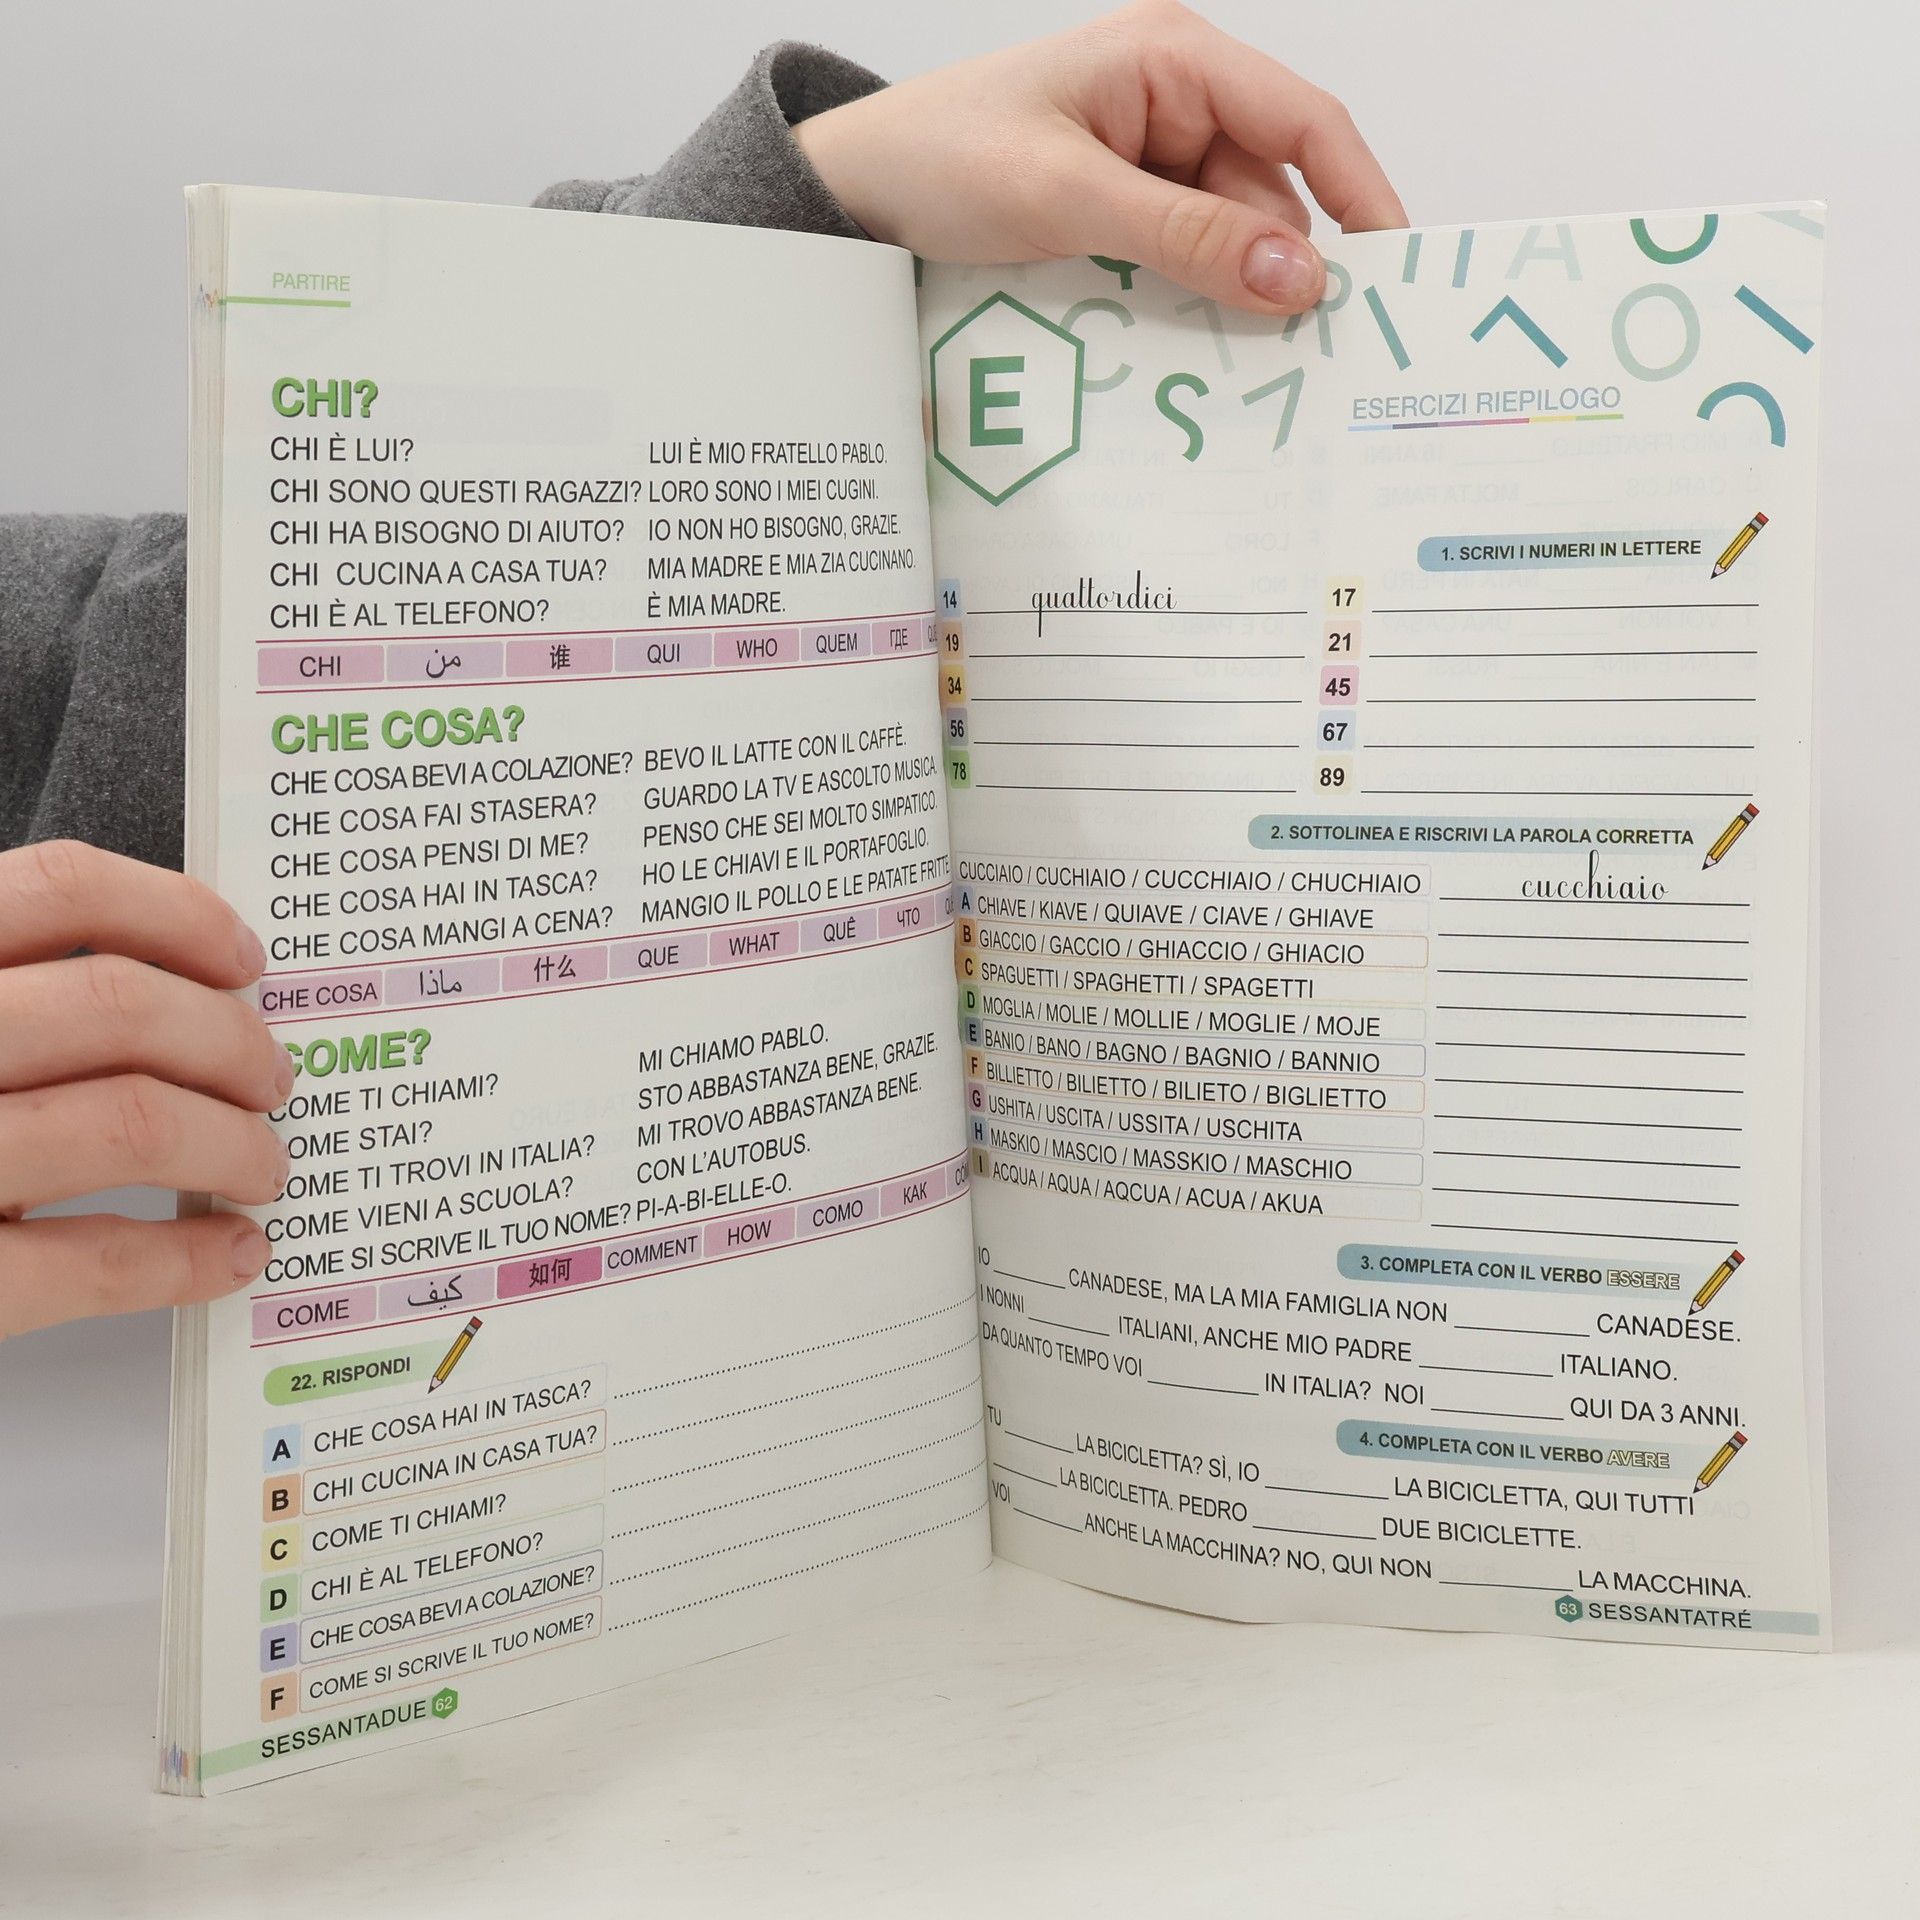 PARTIRE
CHI?
CHI È LUI? LUI È MIO FRATELLO PABLO.
CHI SONO QUESTI RAGAZZI? LORO SONO I MIEI CUGINI.
CHI HA BISOGNO DI AIUTO? IO NON HO BISOGNO, GRAZIE.
CHI CUCINA A CASA TUA? MIA MADRE E MIA ZIA CUCINANO.
CHI È AL TELEFONO? È MIA MADRE.
CHI من 谁 QUI WHO QUEM ГДЕ
CHE COSA?
CHE COSA BEVI A COLAZIONE? BEVO IL LATTE CON IL CAFFÈ.
CHE COSA FAI STASERA? GUARDO LA TV E ASCOLTO MUSICA.
CHE COSA PENSI DI ME? PENSO CHE SEI MOLTO SIMPATICO.
CHE COSA HAI IN TASCA? HO LE CHIAVI E IL PORTAFOGLIO.
CHE COSA MANGI A CENA? MANGIO IL POLLO E LE PATATE FRITTE
CHE COSA ماذا 什么 QUE WHAT QUÊ ЧТО
COME?
COME TI CHIAMI? MI CHIAMO PABLO.
COME STAI? STO ABBASTANZA BENE, GRAZIE.
COME TI TROVI IN ITALIA? MI TROVO ABBASTANZA BENE.
COME VIENI A SCUOLA? CON L'AUTOBUS.
COME SI SCRIVE IL TUO NOME? PI-A-BI-ELLE-O.
COME كيف 如何 COMMENT HOW COMO КАК
22. RISPONDI
A CHE COSA HAI IN TASCA?
B CHI CUCINA IN CASA TUA?
C COME TI CHIAMI?
D CHI È AL TELEFONO?
E CHE COSA BEVI A COLAZIONE?
F COME SI SCRIVE IL TUO NOME?
SESSANTADUE 62
E
ESERCIZI RIEPILOGO
1. SCRIVI I NUMERI IN LETTERE
14 quattordici 17
19 21
34 45
56 67
78 89
2. SOTTOLINEA E RISCRIVI LA PAROLA CORRETTA
CUCCIAIO / CUCHIAIO / CUCCHIAIO / CHUCHIAIO cucchiaio
A CHIAVE / KIAVE / QUIAVE / CIAVE / GHIAVE
B GIACCIO / GACCIO / GHIACCIO / GHIACIO
C SPAGUETTI / SPAGHETTI / SPAGETTI
D MOGLIA / MOLIE / MOLLIE / MOGLIE / MOJE
E BANIO / BANO / BAGNO / BAGNIO / BANNIO
F BILLIETTO / BILIETTO / BILIETO / BIGLIETTO
G USHITA / USCITA / USSITA / USCHITA
H MASKIO / MASCIO / MASSKIO / MASCHIO
I ACQUA / AQUA / AQCUA / ACUA / AKUA
3. COMPLETA CON IL VERBO ESSERE
IO ______ CANADESE, MA LA MIA FAMIGLIA NON ______ CANADESE.
I NONNI ______ ITALIANI, ANCHE MIO PADRE ______ ITALIANO.
DA QUANTO TEMPO VOI ______ IN ITALIA? NOI ______ QUI DA 3 ANNI.
4. COMPLETA CON IL VERBO AVERE
TU ______ LA BICICLETTA? SÌ, IO ______ LA BICICLETTA, QUI TUTTI
______ LA BICICLETTA. PEDRO ______ DUE BICICLETTE.
VOI ______ ANCHE LA MACCHINA? NO, QUI NON ______ LA MACCHINA.
63 SESSANTATRÉ